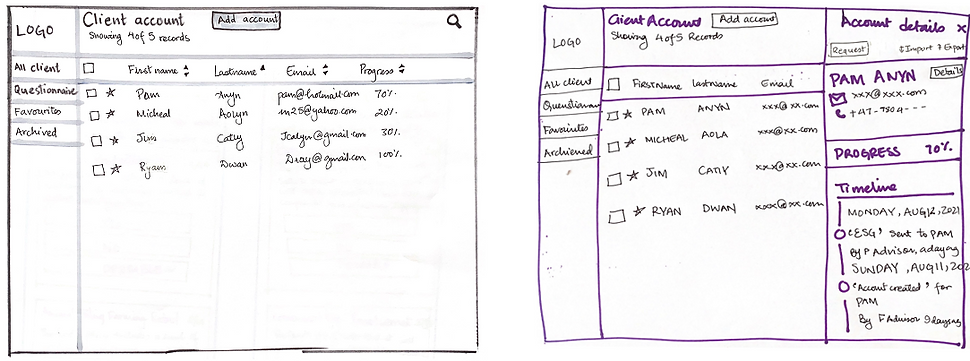 LOGO
Client account
Add account
Showing 4 of 5 records
All client
Questionnaire
Favourites
Archived
First name Lastname Email Progress
Pam Anyn pam@hotmail.com 70%
Micheal Aolyn m25@yahoo.com 20%
Jim Caty Jcalyn@gmail.com 30%
Ryam Dwan Dray@gmail.com 100%
LOGO
Client Account
Add account
Showing 4 of 5 Records
All client
Favourites
Firstname lastname Email
PAM ANYN xxx@xx.com
MICHEAL AOLA xxx@xx.com
JIM CATIY xxx@xx.com
RYAN DWAN xxx@xx.com
Account details x
Request
Import Export
PAM ANYN
Details
xxx@xxx.com
+47-7804---
PROGRESS 70%
Timeline
MONDAY, AUG 12, 2021
'ESG' Sent to PAM
By P Advisor, adayag
SUNDAY, AUG 11, 202
'Account created' for
PAM
By F Advisor 9daysag